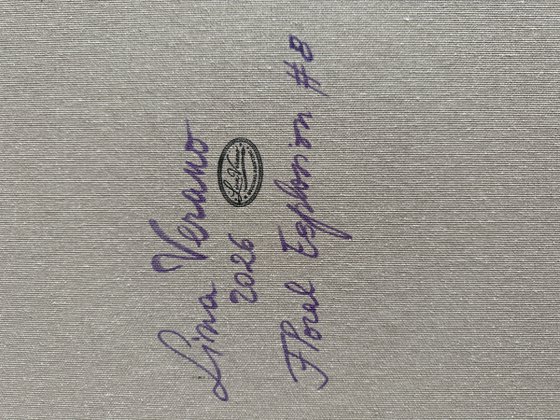 Lina Verano
2026
Floral Explosion #8